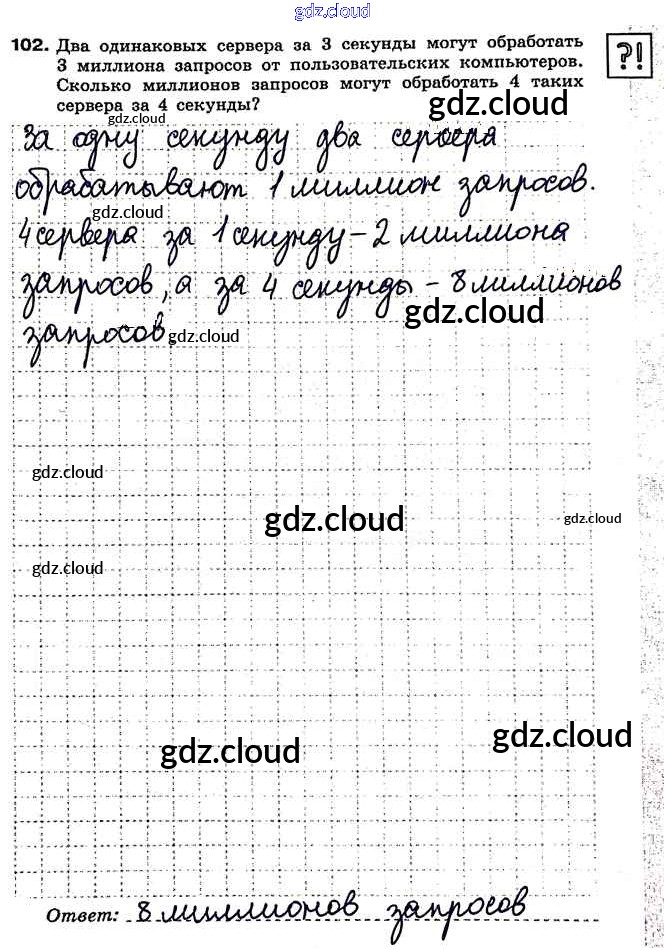 gdz.cloud
102. Два одинаковых сервера за 3 секунды могут обработать
3 миллиона запросов от пользовательских компьютеров.
Сколько миллионов запросов могут обработать 4 таких
сервера за 4 секунды?
?!
gdz.cloud
gdz.cloud
За одну секунду два сервера
обрабатывают 1 миллион запросов.
gdz.cloud
4 сервера за 1 секунду - 2 миллиона
запросов, а за 4 секунды - 8 миллионов
gdz.cloud
запросов.
gdz.cloud
gdz.cloud
gdz.cloud
gdz.cloud
gdz.cloud
gdz.cloud
gdz.cloud
Ответ: 8 миллионов запросов